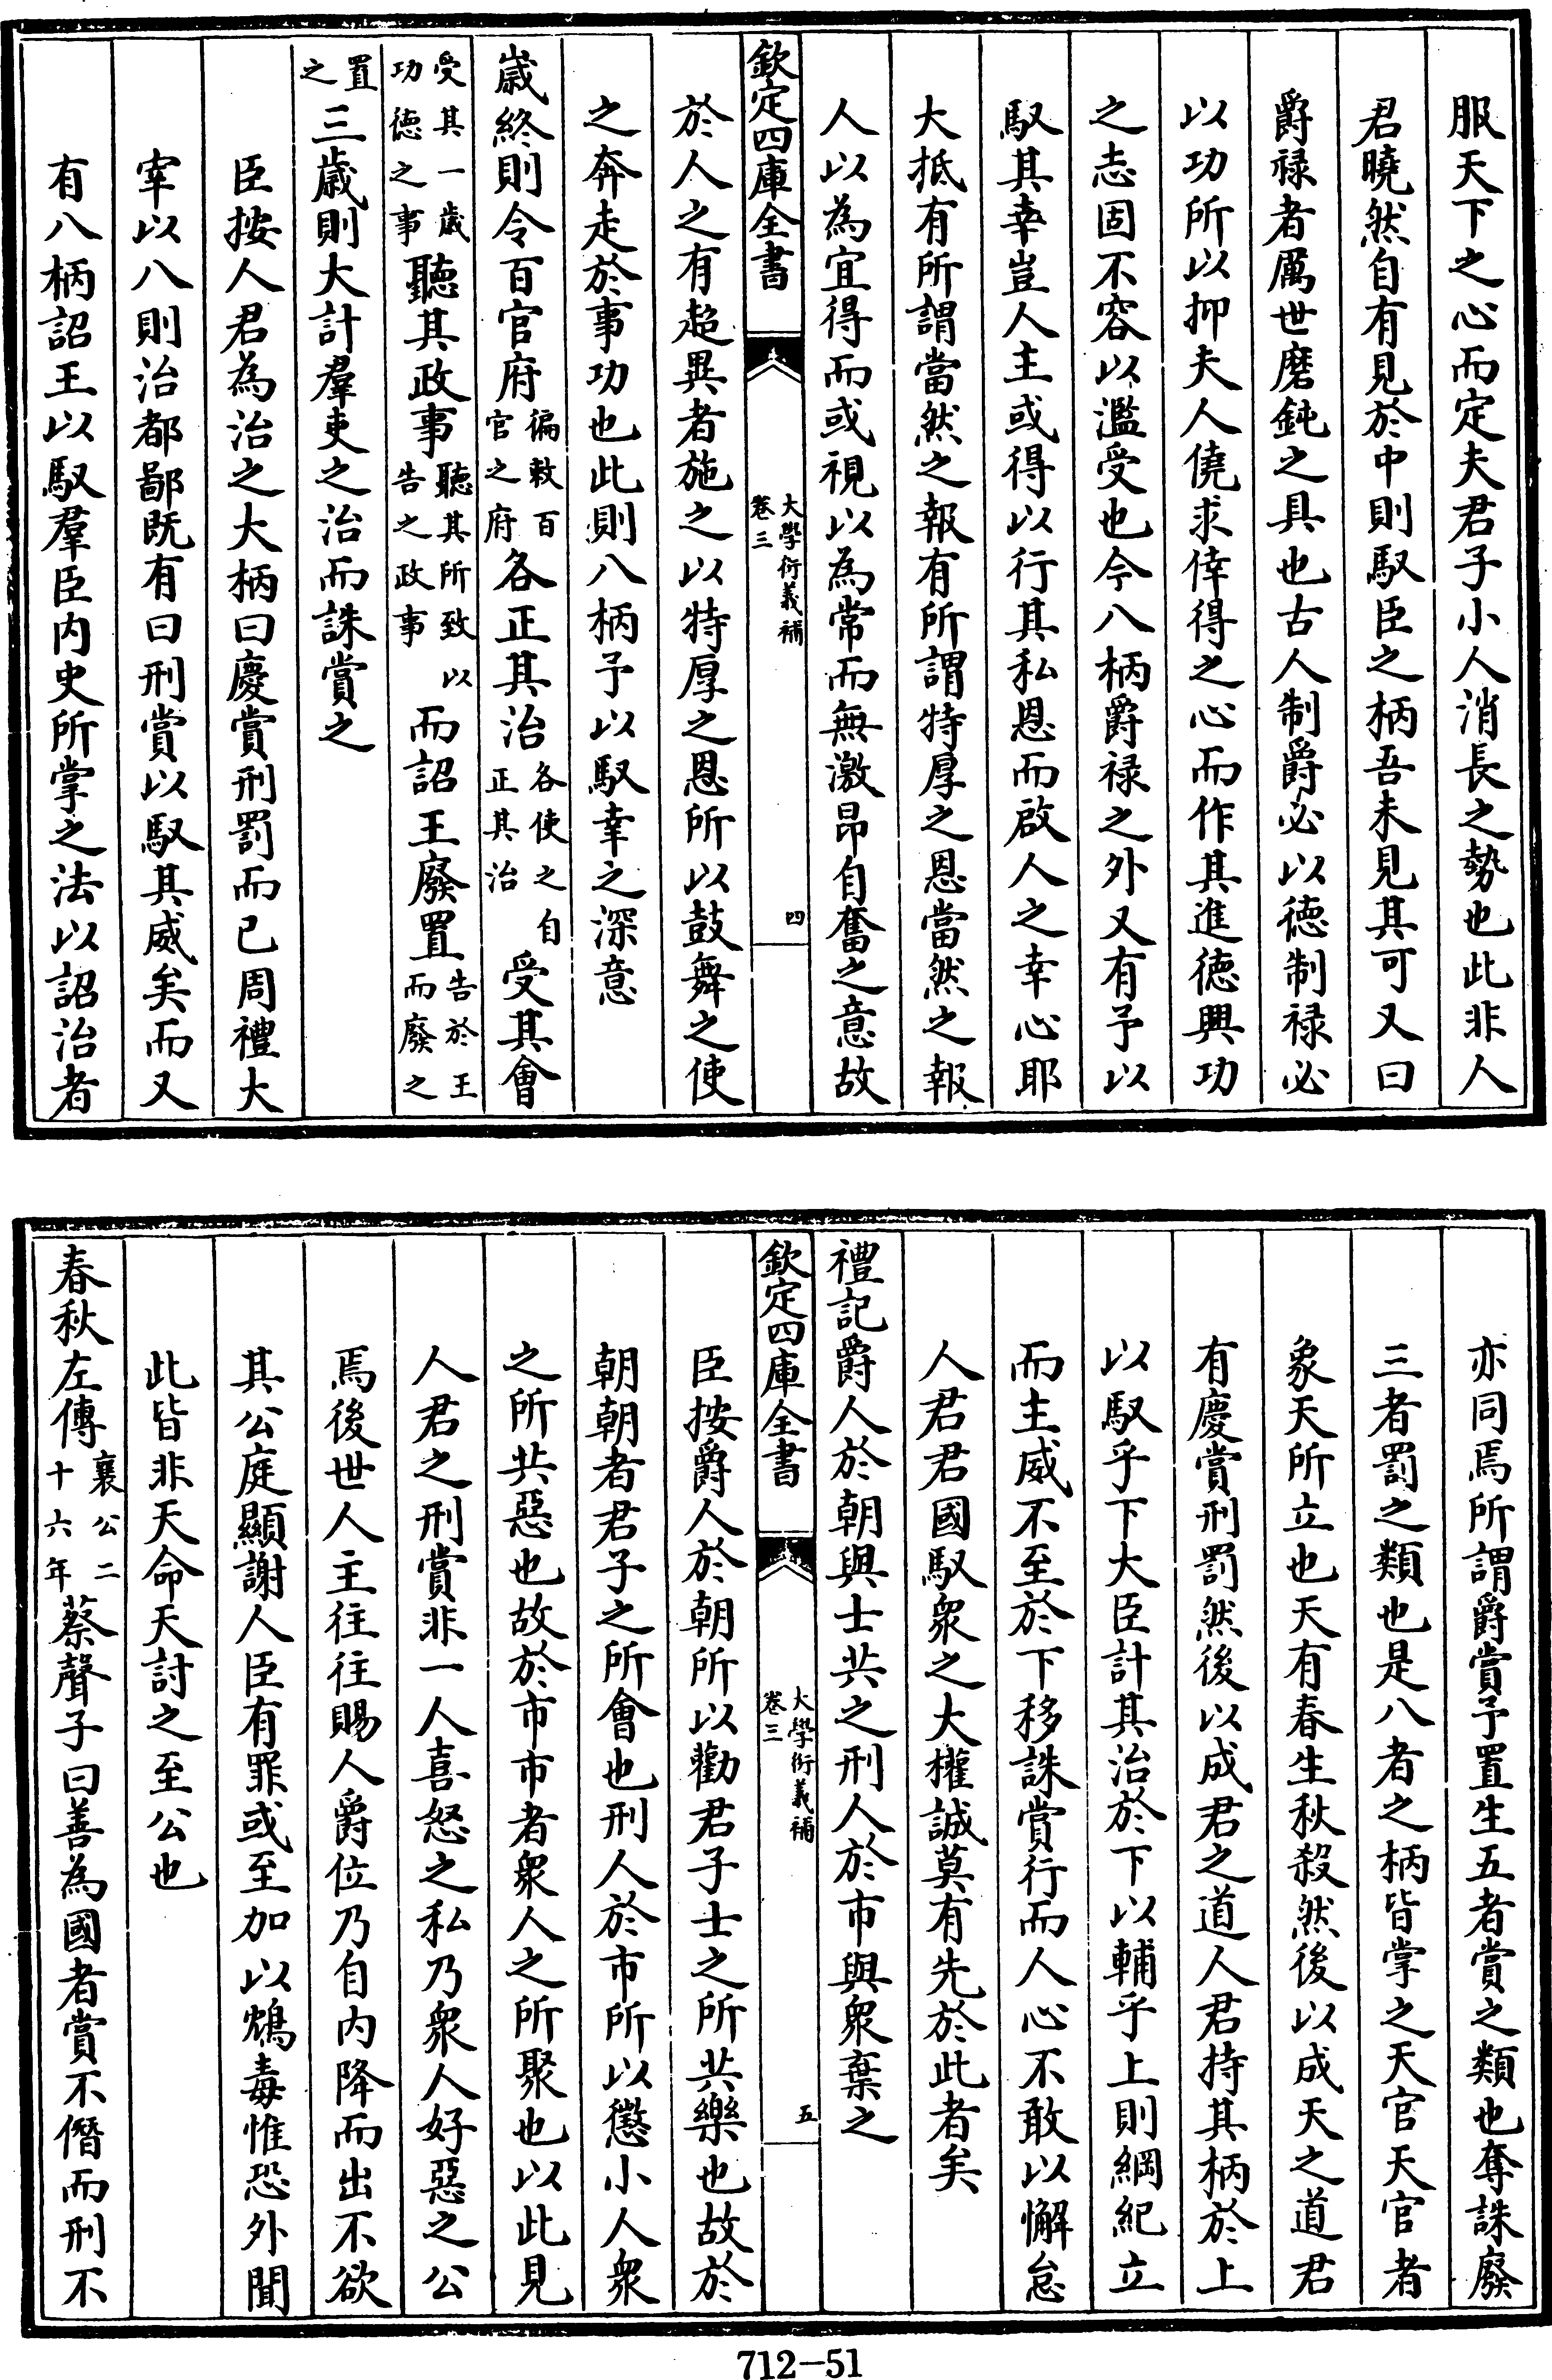 服天下之心而定夫君子小人消長之勢也此非人
君曉然自有見於中則馭臣之柄吾未見其可又曰
爵禄者厲世磨鈍之具也古人制爵必以徳制禄必
以功所以抑夫人僥求倖得之心而作其進徳興功
之志固不容以濫受也今八柄爵禄之外又有予以
馭其幸豈人主或得以行其私恩而啟人之幸心耶
大抵有所謂當然之報有所謂特厚之恩當然之報
人以為宜得而或視以為常而無激昂自奮之意故
欽定四庫全書
大學衍義補
卷三
四
於人之有超異者施之以特厚之恩所以鼓舞之使
之奔走於事功也此則八柄予以馭幸之深意
歳終則令百官府徧敕百官之府各正其治各使之自正其治受其會
受其一歳功徳之事聽其政事聽其所致以告之政事而詔王廢置告於王而廢之
置之三歳則大計羣吏之治而誅賞之
臣按人君為治之大柄曰慶賞刑罰而已周禮大
宰以八則治都鄙既有曰刑賞以馭其威矣而又
有八柄詔王以馭羣臣内史所掌之法以詔治者
亦同焉所謂爵賞予置生五者賞之類也奪誅廢
三者罰之類也是八者之柄皆掌之天官天官者
象天所立也天有春生秋殺然後以成天之道君
有慶賞刑罰然後以成君之道人君持其柄於上
以馭乎下大臣計其治於下以輔乎上則綱紀立
而主威不至於下移誅賞行而人心不敢以懈怠
人君君國馭衆之大權誠莫有先於此者矣
禮記爵人於朝與士共之刑人於市與衆棄之
欽定四庫全書
大學衍義補
卷三
五
臣按爵人於朝所以勸君子士之所共樂也故於
朝朝者君子之所會也刑人於市所以懲小人衆
之所共惡也故於市市者衆人之所聚也以此見
人君之刑賞非一人喜怒之私乃衆人好惡之公
焉後世人主往往賜人爵位乃自内降而出不欲
其公庭顯謝人臣有罪或至加以鴆毒惟恐外聞
此皆非天命天討之至公也
春秋左傳襄公二十六年蔡聲子曰善為國者賞不僭而刑不
712-51